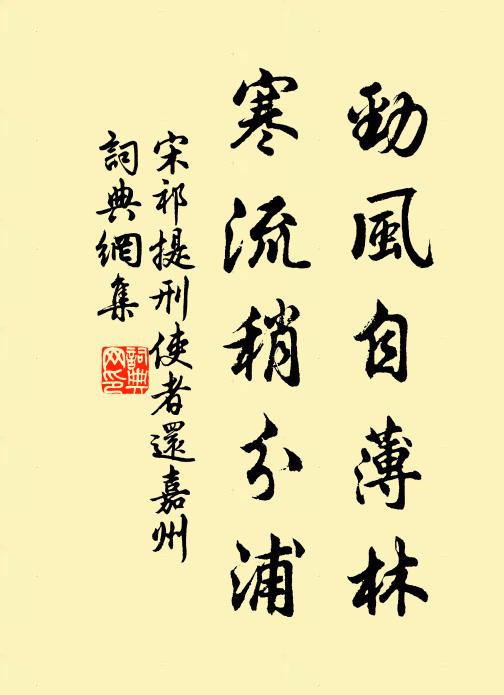 勁風自薄林
寒流稍分浦
宋祁提刑使者還嘉州
詞典網集
詞典网印